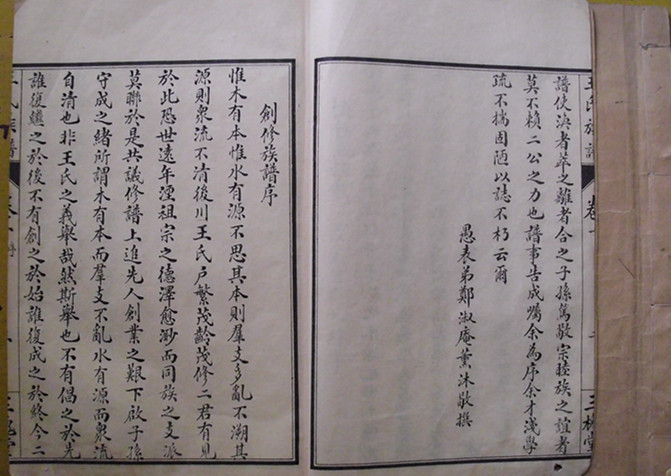 譜使渙者萃之離者合之子孫篤敬宗睦族之誼者
莫不賴二公之力也譜事告成囑余為序余才淺學
疏不揣固陋以誌不朽云爾
愚表弟鄭淑庵薰沐敬撰
創修族譜序
惟木有本惟水有源不思其本則羣支多亂不溯其
源則衆流不清後川王氏戶繁茂齡茂修二君有見
於此恐世遠年湮祖宗之德澤愈渺而同族之支派
莫聯於是共議修譜上追先人創業之艱下啟子孫
守成之緒所謂木有本而羣支不亂水有源而衆流
自清也非王氏之義舉哉然斯舉也不有倡之於先
誰復繼之於後不有創之於始誰復成之於終今二
王氏族譜
卷一
序
三槐堂